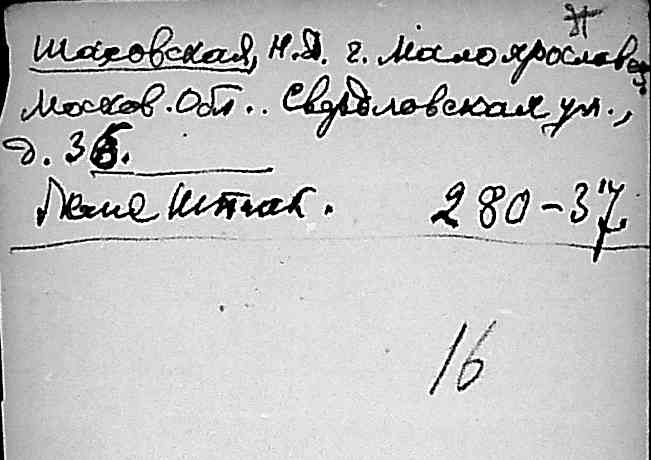 Шаховская, Н.Д. г. Малоярославец
Москов. Обл.. Свердловская ул.,
д. 36.
280-37
16